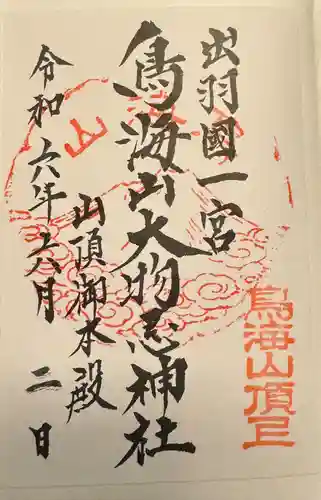 出羽國一宮
鳥海山大物忌神社
山頂御本殿
令和六年六月二日
鳥海山頂